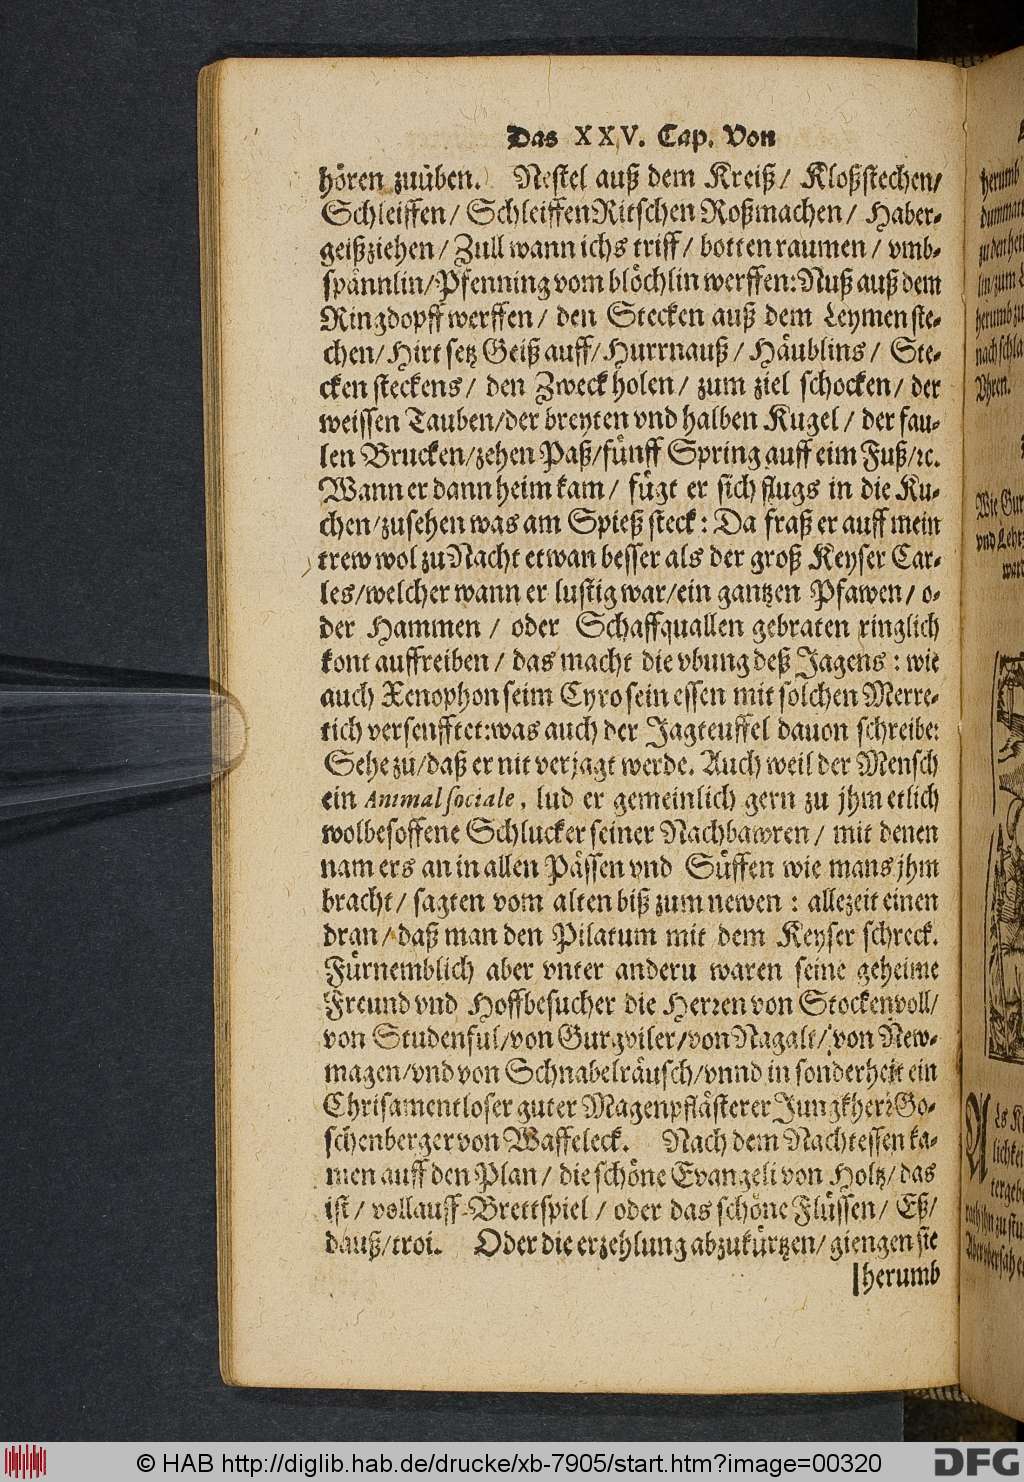 Das XXV. Cap. Von
hören zuüben. Nestel auß dem Kreiß/ Kloßstechen/
Schleiffen/ Schleiffen Ritschen Roßmachen/ Haber-
geißziehen/ Zull wann ichs triff/ botten raumen/ vmb-
spännlin/ Pfenning vom blöchlin werffen: Nuß auß dem
Ringdopff werffen/ den Stecken auß dem Leymen ste-
chen/ Hirt setz Geiß auff/ Hurrnauß/ Häublins/ Ste-
cken steckens/ den Zweck holen/ zum ziel schocken/ der
weissen Tauben/ der breyten vnd halben Kugel/ der fau-
len Brucken/ zehen Paß/ fünff Spring auff eim Fuß/ ꝛc.
Wann er dann heim kam/ fügt er sich flugs in die Ku-
chen/ zusehen was am Spieß steck: Da fraß er auff mein
trew wol zu Nacht etwan besser als der groß Keyser Car-
les/ welcher wann er lustig war/ ein gantzen Pfawen/ o-
der Hammen/ oder Schaffquallen gebraten ringlich
kont auffreiben/ das macht die vbung deß Jagens: wie
auch Xenophon seim Cyro sein essen mit solchen Merre-
tich versenfftet: was auch der Jagteuffel dauon schreibe:
Sehe zu/ daß er nit verjagt werde. Auch weil der Mensch
ein Animal sociale, lud er gemeinlich gern zu jhm etlich
wolbesoffene Schlucker seiner Nachbawren/ mit denen
nam ers an in allen Pässen vnd Süffen wie mans jhm
bracht/ sagten vom alten biß zum newen: allezeit einen
dran/ daß man den Pilatum mit dem Keyser schreck.
Fürnemblich aber vnter anderu waren seine geheime
Freund vnd Hoffbesucher die Herꝛen von Stockenvoll/
von Studenful/ von Gurgviler/ von Nagalt/ von New-
magen/ vnd von Schnabelräusch/ vnnd in sonderheit ein
Chrisamentloser guter Magenpflästerer Jungkherꝛ Go-
schenberger von Waffeleck. Nach dem Nachtessen ka-
men auff den Plan/ die schöne Evangeli von Holtz/ das
ist/ vollauff Brettspiel/ oder das schöne Flüssen/ Eß/
dauß/ troi. Oder die erzehlung abzukürtzen/ giengen sie
herumb
herumb
Uhren.
Wie Gur
© HAB http://diglib.hab.de/drucke/xb-7905/start.htm?image=00320
DFG